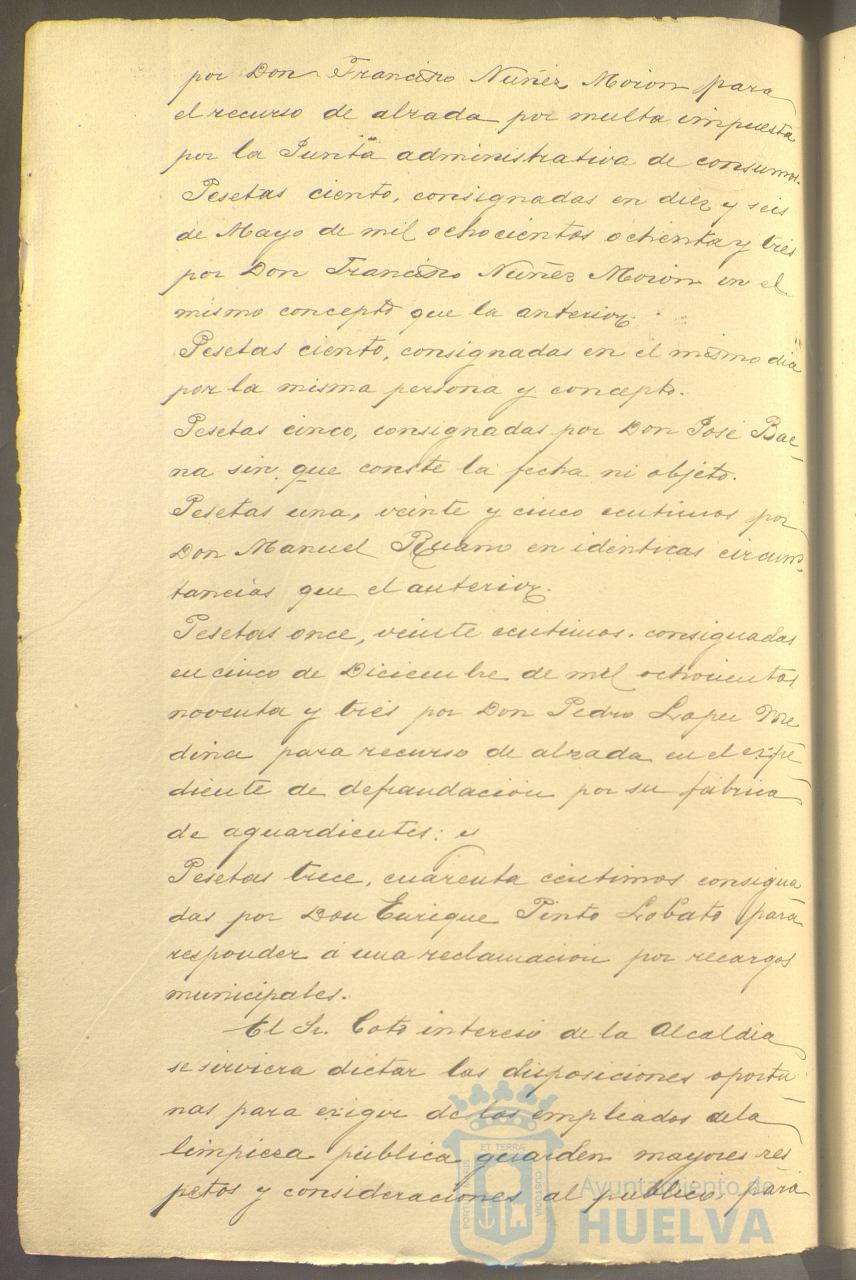 por Don Francisco Nuñez Moron para
el recurso de alzada por multa impuesta
por la Junta administrativa de consumos.
Pesetas ciento, consignadas en diez y seis
de Mayo de mil ochocientos ochenta y tres
por Don Francisco Nuñez Moron en el
mismo concepto que la anterior.
Pesetas ciento, consignadas en el mismo dia
por la misma persona y concepto.
Pesetas cinco, consignadas por Don José Bae-
na sin que conste la fecha ni objeto.
Pesetas una, veinte y cinco centimos por
Don Manuel Ruano en identicas circuns-
tancias que el anterior.
Pesetas once, veinte centimos. consignadas
en cinco de Diciembre de mil ochocientos
noventa y tres por Don Pedro Lopez Me
dina para recurso de alzada en el expe
diente de defraudación por su fabrica
de aguardientes: y
Pesetas trece, cuarenta centimos consigna
das por Don Enrique Pinto Lobato para
responder á una reclamación por recargos
municipales.
El Sr. Coto interesó de la Alcaldia
se sirviera dictar las disposiciones oportu
nas para exigir de los empleados de la
limpieza pública guarden mayores res
petos y consideraciones al público para
PORTUS MARIS ET TERRAE CUSTODIA
Ayuntamiento de
HUELVA